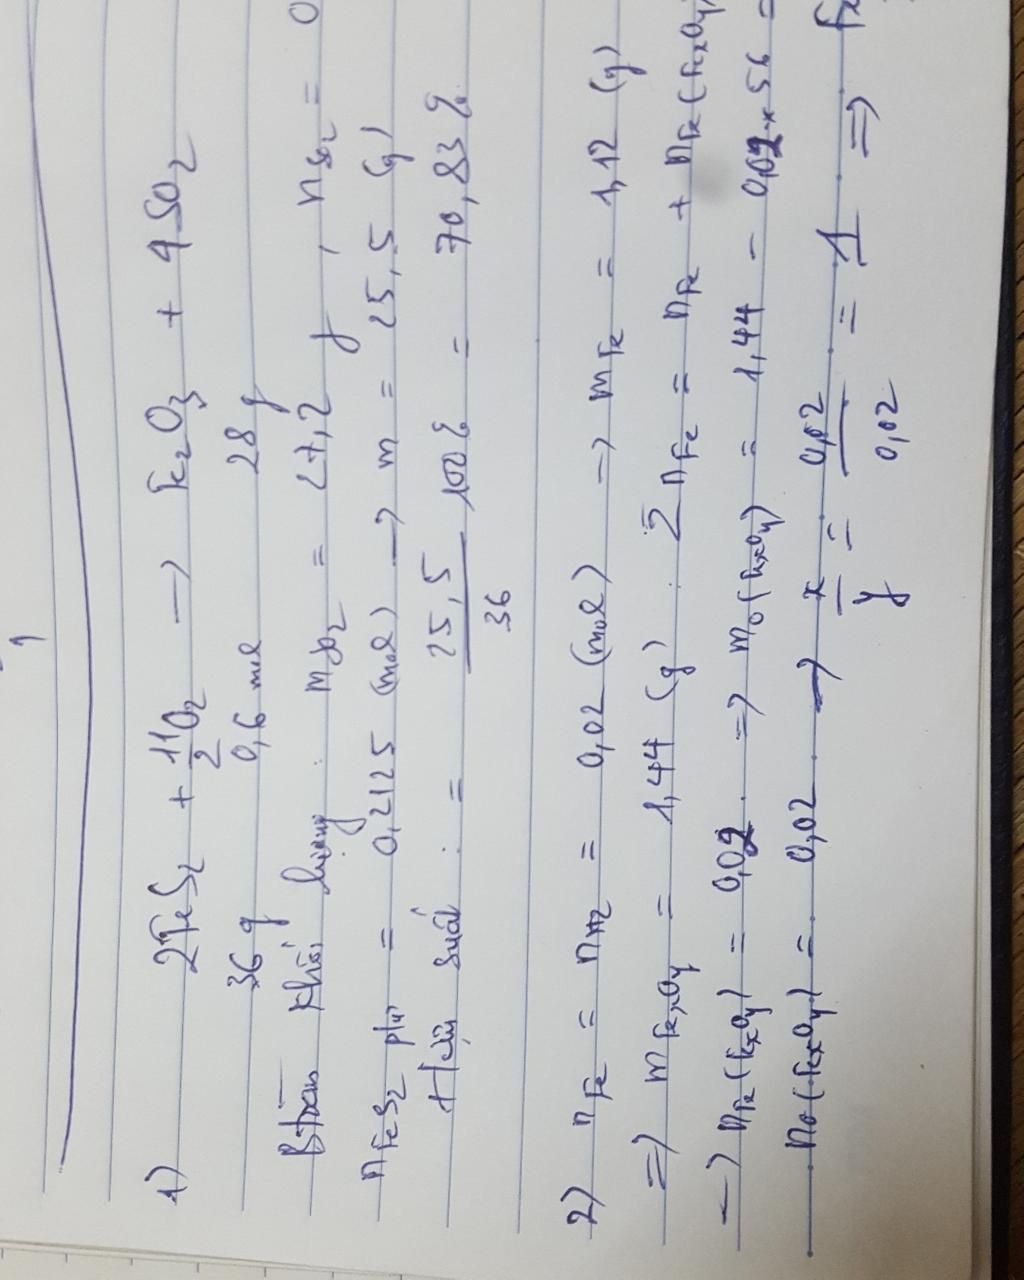 1) 2FeS2 + 11/2 O2 → Fe2O3 + 4SO2
36 g 0,6 mol 28 g
Btoàn khối lượng : mSO2 = 27,2 g , nSO2 = 0
nFeS2 pứ = 0,2125 (mol) → m = 25,5 (g)
Hiệu suất : = 25,5/36 100% = 70,83%
2) nFe = nH2 = 0,02 (mol) → mFe = 1,12 (g)
=> mFexOy = 1,44 (g) . Σ nFe = nFe + nFe(FexOy)
→ nFe(FexOy) = 0,02 . => mO(FexOy) = 1,44 - 0,02 x 56 =
nO(FexOy) = 0,02 → x/y = 0,02/0,02 = 1 => Fe